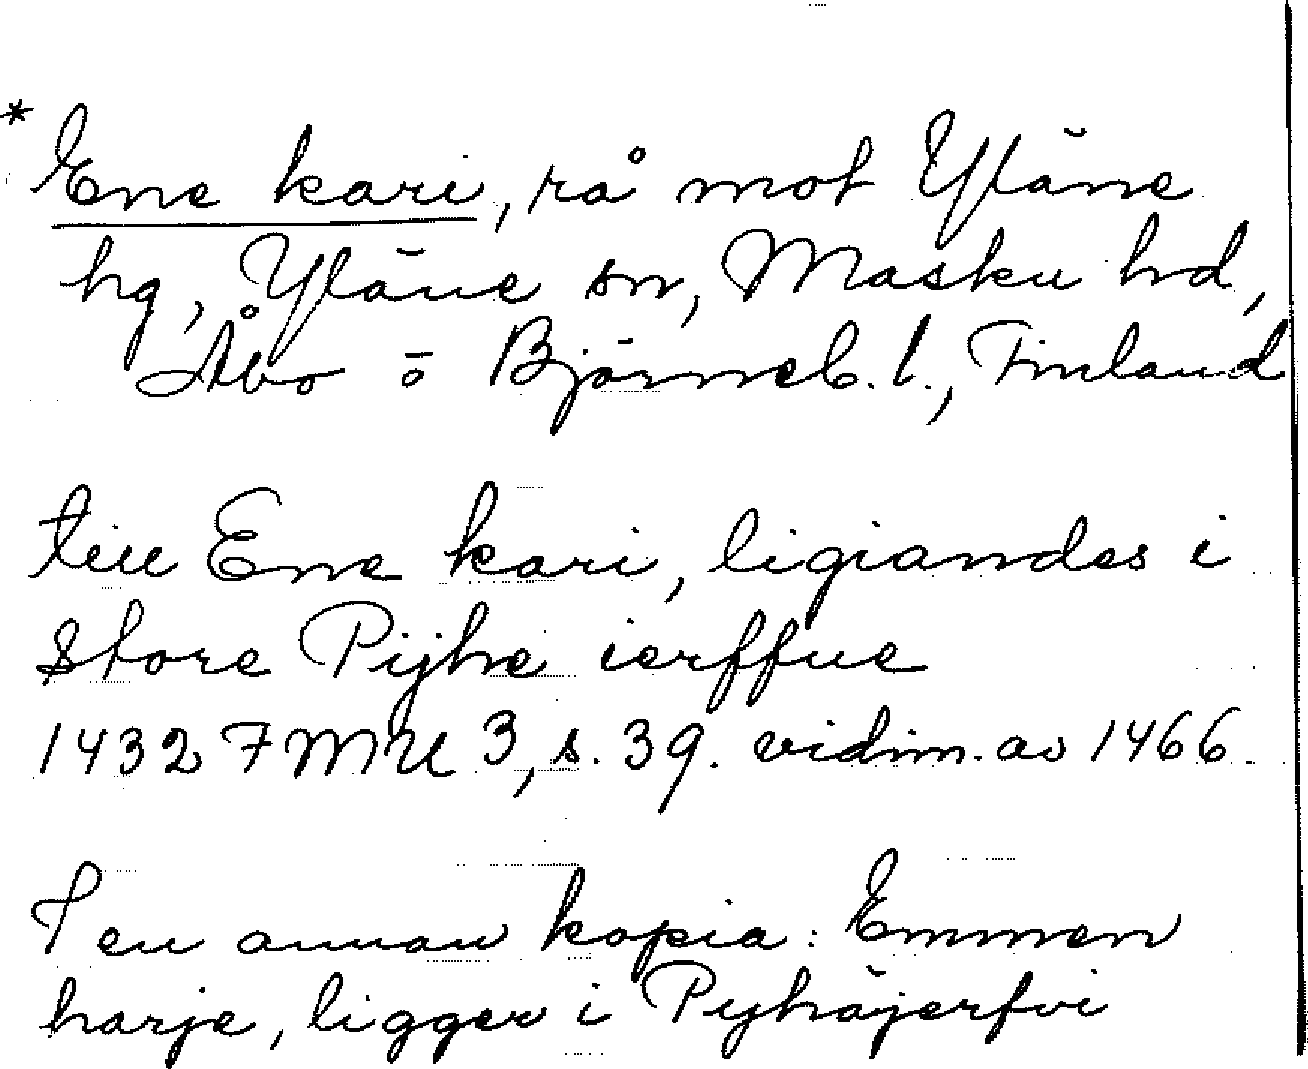 * Ene kari, rå mot Yläne
hg, Yläne sn, Masku hd,
Åbo o Björneb. l., Finland
till Ene kari, ligiandes i
Store Pijhe ierffue
1432 FMU 3, s. 39. vidim. av 1466.
I en annan kopia: Emmen
harje, ligger i Pyhäjerfvi